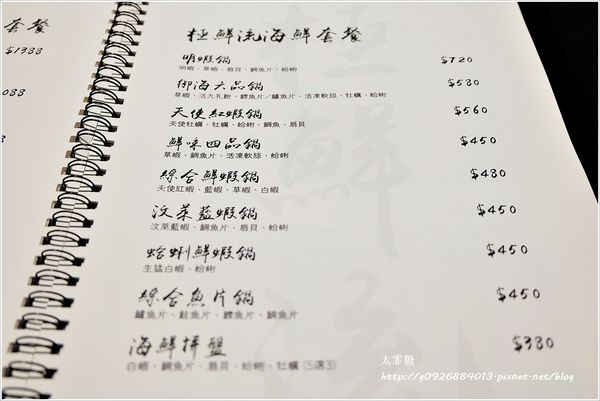 套餐
$1388
088
極鮮流海鮮套餐
明蝦鍋 $720
明蝦、草蝦、扇貝、鯛魚片、蛤蜊
御海六品鍋 $580
草蝦、活九孔鮑、鱈魚片/鱸魚片、活凍軟絲、牡蠣、蛤蜊
天使紅蝦鍋 $560
天使牡蠣、牡蠣、蛤蜊、鯛魚、扇貝
鮮味四品鍋 $450
草蝦、鯛魚片、活凍軟絲、蛤蜊
綜合鮮蝦鍋 $480
天使紅蝦、藍蝦、草蝦、白蝦
汶萊藍蝦鍋 $450
汶萊藍蝦、鯛魚片、扇貝、蛤蜊
蛤蜊鮮蝦鍋 $450
生猛白蝦、蛤蜊
綜合魚片鍋 $450
鱸魚片、鮭魚片、鱈魚片、鯛魚片
海鮮拼盤 $380
白蝦、鯛魚片、扇貝、蛤蜊、牡蠣 (5選3)
太零糖
http://q0926884013.pixnet.net/blog